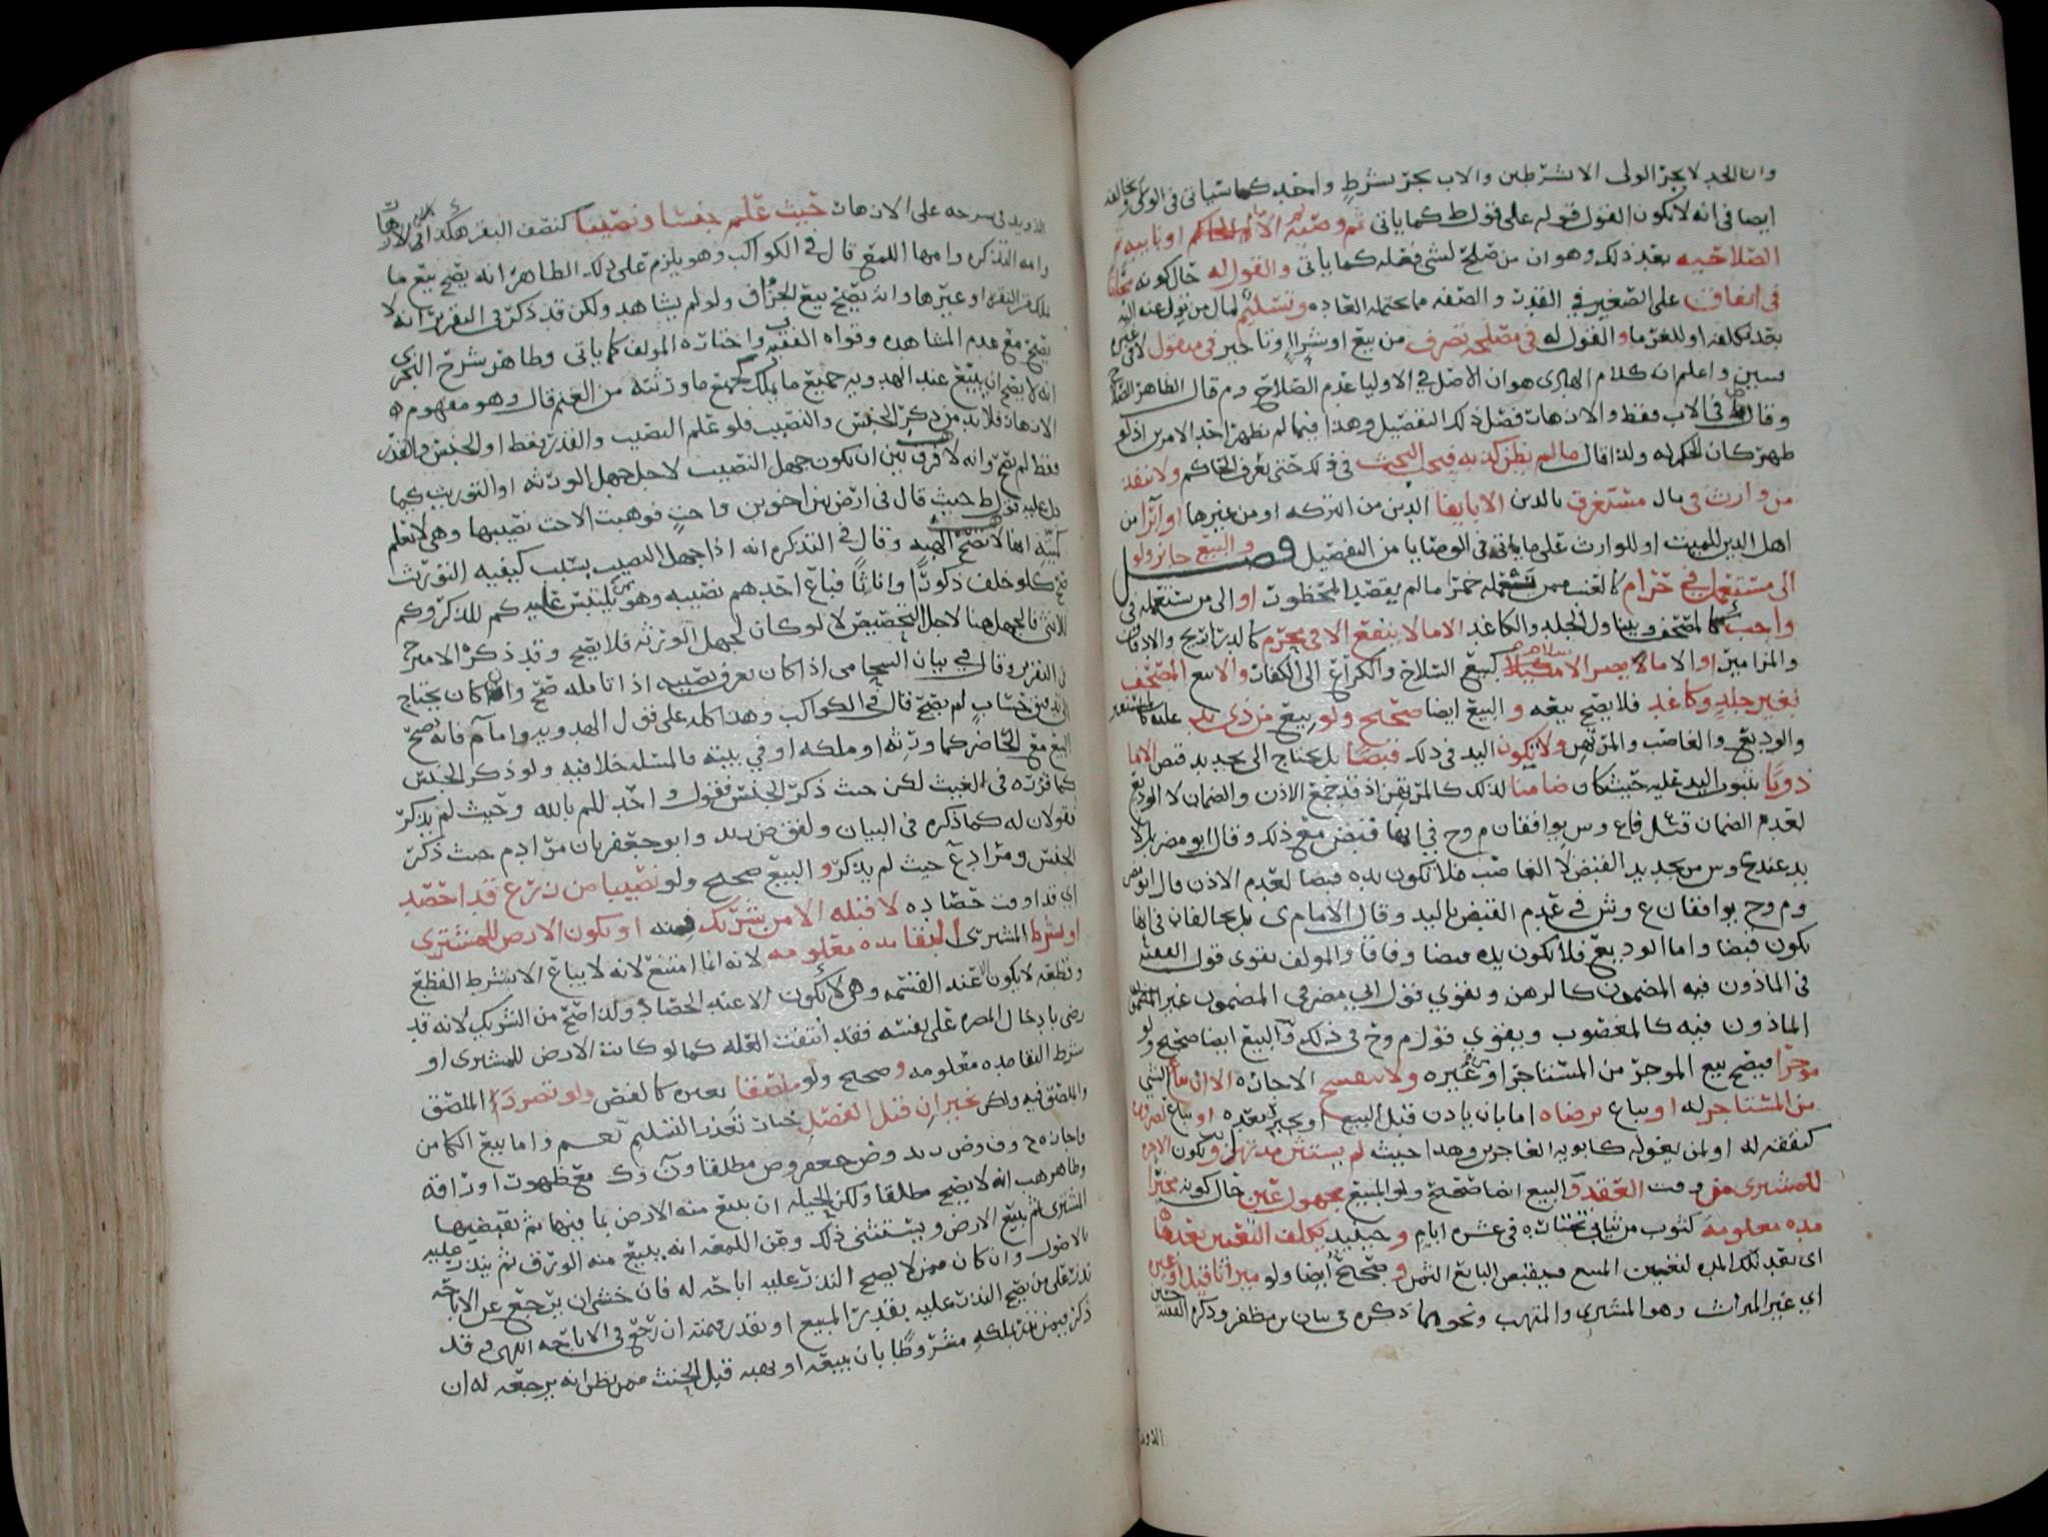 وان الجد لا يجز الولى الا بشرطين والاب يجز بشرط واحد كما سياتي في الوكي
ايضا في انه لا يكون القول قوله على قول ط كما ياتى ثم وصيه ثم الامام والحاكم او نايبه
الصلاحيه بعد ذلك وهو ان من صلح لشي فعله كما ياتى والقول له حال كونه
في انفاق على الصغير في القدر والصفه مما يحتمله العاده وتسليم لمال من تولى عنه اليه
بعد تكلفه او للغرما والقول له في مصلحه تصرف من بيع او شراء وتاخير في منقول لا في غيره
واعلم ان كلام الهادى هو ان الاصل في الاوليا عدم الصلاح و م قال الظاهر الصلاح
وقال ط في الاب فقط والازهار فصل ذلك التفصيل وهذا فيما لم يظهر احد الامرين اذ لو
ظهر كان الحكم له ولذا قال ما لم يظن كذبه فيجب البحث في ذلك حتى يعرف الحاكم ولا ينفذ
من وارث في مال مستغرق بالدين الا بايفا الدين من التركه او من غيرها او ابرا من
اهل الدين للميت او للوارث على ما ياتى في الوصايا من التفصيل فصل والبيع جايز ولو
الى مستعمل في حرام كالعنب ممن يستعمله خمرا ما لم يقصد المحظور او الى من يستعمله في
واجب كالمصحف ويتناول الجلد والكاغد الا ما لا ينفع الا في محرم كالدراريج والادفاف
والمزامير او الا مالا كبيع السلاح والكراع الى الكفار والا بيع المصحف
بغير جلد وكاغد فلا يصح بيعه والبيع ايضا صحيح ولو بيع من ذي يد عليه كالمستعير
والوديع والغاصب والمرتهن ولا تكون اليد في ذلك قبضا بل يحتاج الى تجديد قبض الا ما
ذو يد بثبوت اليد عليه حيث كان ضامنا لذلك كالمرتهن اذ قد جمع الاذن والضمان لا الوديع
لعدم الضمان قبل فاع وس يوافقان م و ح في انها قبض مع ذلك وقال ابو مضر بل لا
بد عند ح وس من تجديد القبض لا الغاصب فلا تكون يده قبضا لعدم الاذن قال ابو مضر
وم وح يوافقان ع وش في عدم القبض باليد وقال الامام ى بل يخالفان في انها
يكون قبضا واما الوديع فلا يكون يده قبضا وفاقا والمولف يقوى قول الفقيه
في الماذون فيه المضمون كالرهن ويقوي قول ابي مضر في المضمون غير
الماذون فيه كالمغصوب ويقوى قول م وح في ذلك والبيع ايضا صحيح ولو
موجرا فيصح بيع الموجر من المستاجر او غيره ولا تنفسخ الاجاره الا ان يباع الشي
من المستاجر له او يباع برضاه اما بان ياذن قبل البيع او يجيز بعده او يباع لضروره
كنفقه له او لمن يعوله كابويه العاجزين وهذا حيث لم يستثن مدتها وتكون الاجره
للمشترى من وقت العقد والبيع ايضا صحيح ولو المبيع مجهول عين حال كونه مخيرا
مده معلومه كثوب من ثياب يختاره في عشره ايام وحينيذ يكلف التعيين بعدها
اى بعد تلك المده لتعيين المبيع فيقبض البايع الثمن وصحيح ايضا ولو ميراثا قبل او غيره
اي غير الميراث وهو المشترى والمتهب ونحوهما ذكره في بيان بن مظفر وذكره الفقيه
الذويد
الذويد في شرحه على الازهار حيث علم جنسا ونصيبا كنصف البقر هكذا في الازهار
وامه التذكره وامها اللمع قال في الكواكب وهو يلزم على ذلك الظاهر انه يصح بيع ما
ملك من البقر او غيرها وانه يصح بيع الجزاف ولو لم يشاهد ولكن قد ذكر في التقرير انه لا
يصح مع عدم المشاهده وقواه الفقيه واختاره المولف كما ياتى وظاهر شرح البحر
انه لا يصح ان يبيع عند الهدويه جميع ما يملك كبيع ما ورثته من الغنم قال وهو مفهوم
الازهار فلا بد من ذكر الجنس والنصيب فلو علم النصيب والقدر فقط او الجنس والقدر
فقط لم يصح وانه لا فرق بين ان يكون جهل النصيب لاجل جهل الورثه او التوريث كما
دل عليه قول ط حيث قال في ارض بين اخوين واخت فوهبت الاخت نصيبها وهي لا تعلم
كميته انها لا تصح الهبه وقال في التذكره انه اذا جهل النصيب بسبب كيفيه التوريث
صح كلو خلف ذكورا واناثا فباع احدهم نصيبه وهو يلتبس عليه كم للذكر وكم
للانثى فالجهل هنا لاجل التحصيص لا لو كان لجهل الورثه فلا يصح وقد ذكره الامير ح
في التقرير وقال في بيان السحامى اذا كان يعرف نصيبه اذا تامله صح وان كان يحتاج
الى تدقيق حساب لم يصح قال في الكواكب وهذا كله على قول الهدويه واما م فانه يصحح
البيع مع الحاضر كما ورثه او ملكه او في بيته فالمسله خلافيه ولو ذكر الجنس
كما قرره في الغيث لكن حيث ذكر الجنس فقول واحد للم بالله وحيث لم يذكر
فقولان له كما ذكره في البيان ولفق ض زيد وابو جعفر بان مراد م حيث ذكر
الجنس ومراد ع حيث لم يذكر والبيع صحيح ولو نصيبا من زرع قد احصد
اي قد اوقت حصاده لا قبله الا من شريك فيه او يكون الارض للمشترى
او بشرط المشترى البقا مده معلومه لانه انما امتنع لانه لا يباع الا بشرط القطع
وقطعه لا يكون الا عند القسمه وهي لا تكون الا عند الحصاد ولذا صح من الشريك لانه قد
رضى بادخال المضره على نفسه فقد انتفت العله كما لو كانت الارض للمشترى او
شرط البقا مده معلومه وصحيح ولو ملصقا بغيره كالفص ولو تضررا الملصق
والملصق فيه ولكن يخيران قبل الفصل خيار تعذر التسليم نعم واما بيع الكامن
فاجازه ح وف وض زيد وض جعفر وص مطلقا وآن ذك مع ظهور اوراقه
وظاهر هب انه لا يصح مطلقا ولكن الحيله ان يبيع منه الارض بما فيها ثم يقبضها
المشترى ثم يبيع الارض ويستثنى ذلك وفي اللمعه انه يبيع منه الورق ثم ينذر عليه
بالاصول وان كان ممن لا يصح النذر عليه اباحه له فان خشى ان يرجع عن الاباحه
نذر على من يصح النذر عليه بقدر المبيع او بقدر قيمته ان رجع في الاباحه انتهى و قد
ذكر فيمن نذر بملكه مشروطا بان يبيعه او يهبه قبل الحنث فمن يظن انه يرجعه له ان